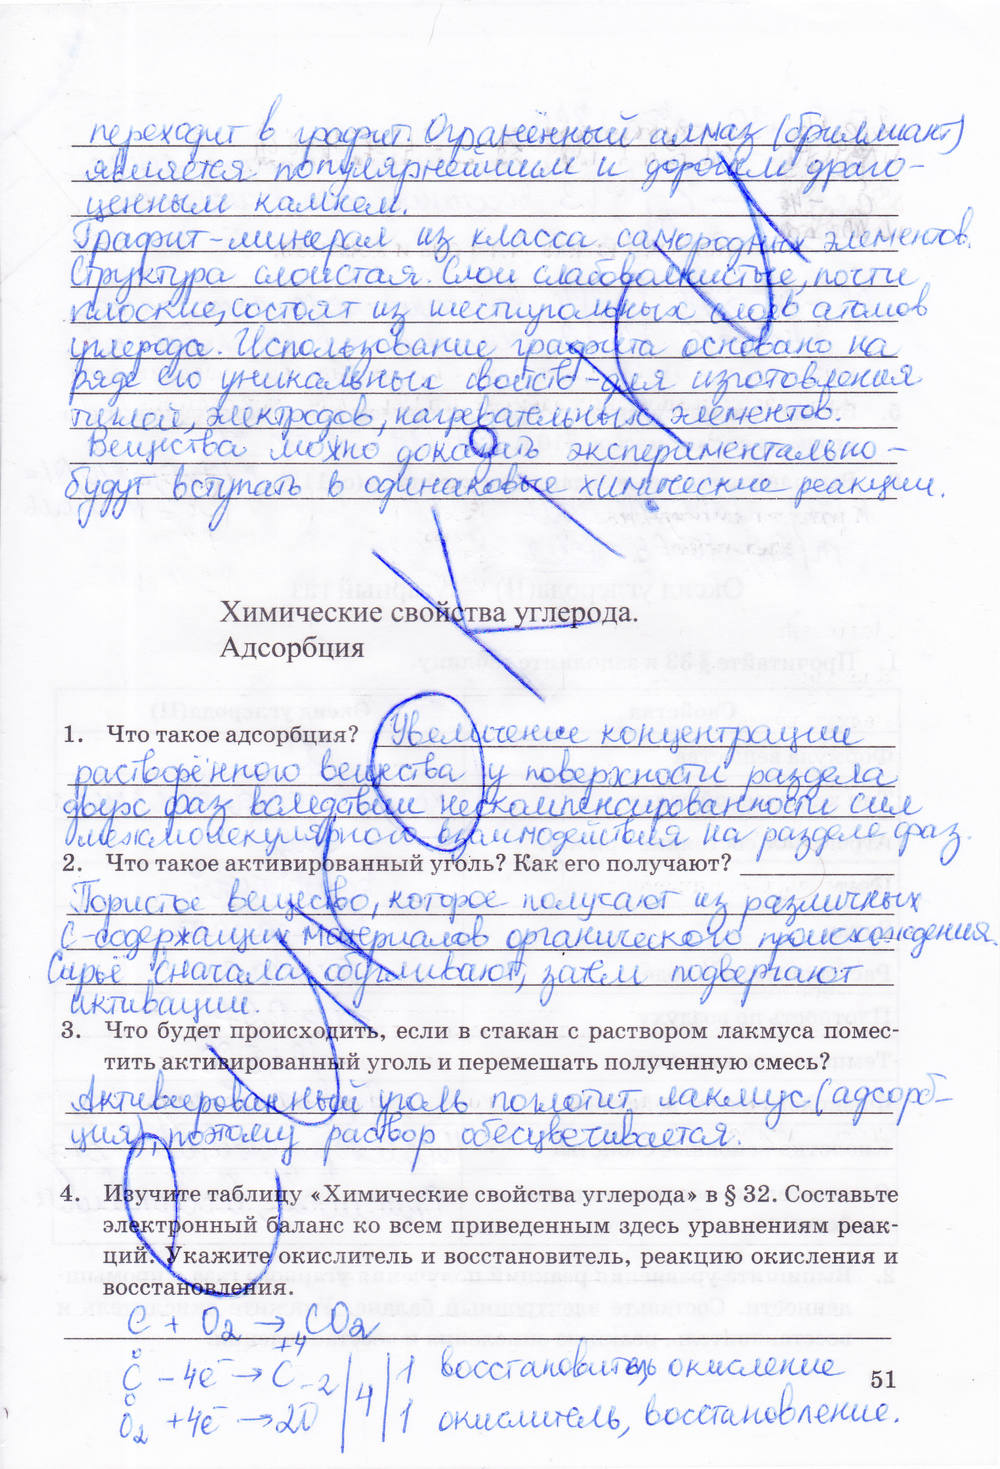 переходит в графит. Огранённый алмаз (бриллиант)
является популярнейшим и дорогим драго-
ценным камнем.
Графит-минерал из класса самородных элементов.
Структура слоистая. Слои слабоволнистые, почти
плоские, состоят из шестиугольных слоёв атомов
углерода. Использование графита основано на
ряде его уникальных свойств-для изготовления
тиглей, электродов, нагревательных элементов.
Вещества можно доказать экспериментально-
будут вступать в одинаковые химические реакции.
Химические свойства углерода.
Адсорбция
1. Что такое адсорбция? Увеличение концентрации
растворённого вещества у поверхности раздела
двух фаз вследствии нескомпенсированности сил
межмолекулярного взаимодействия на разделе фаз.
2. Что такое активированный уголь? Как его получают?
Пористое вещество, которое получают из различных
С-содержащих материалов органического происхождения.
Сырьё сначала обугливают, затем подвергают
активации.
3. Что будет происходить, если в стакан с раствором лакмуса помес-
тить активированный уголь и перемешать полученную смесь?
Активированный уголь поглотит лакмус (адсорб-
ция), поэтому раствор обесцвечивается.
4. Изучите таблицу «Химические свойства углерода» в § 32. Составьте
электронный баланс ко всем приведенным здесь уравнениям реак-
ций. Укажите окислитель и восстановитель, реакцию окисления и
восстановления.
C + O2 → CO2
C⁰ – 4e⁻ → C⁺⁴ | 4 | 1 восстановитель, окисление
O2⁰ + 4e⁻ → 2O⁻² | 1 окислитель, восстановление.
51